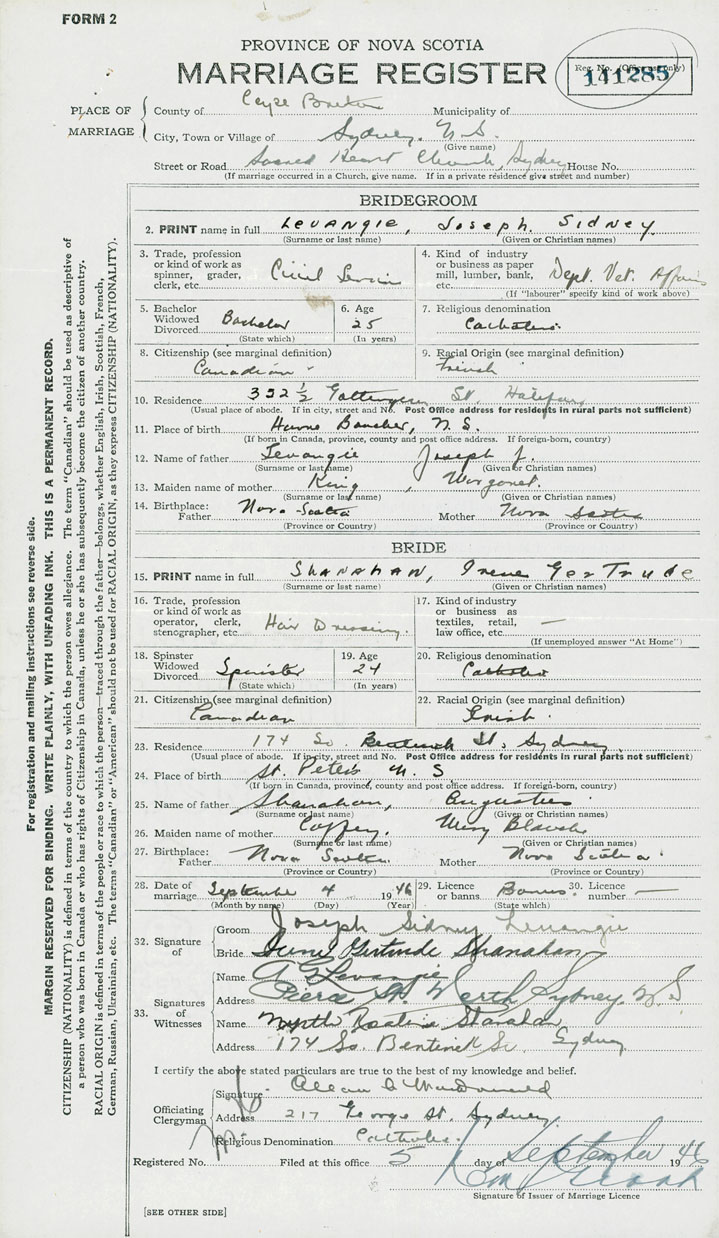 FORM 2
PROVINCE OF NOVA SCOTIA
MARRIAGE REGISTER
Reg. No. (Office use only)
141285
PLACE OF MARRIAGE
County of Cape Breton Municipality of
City, Town or Village of Sydney. N.S.
(Give name)
Street or Road Sacred Heart Church, Sydney House No.
(If marriage occurred in a Church, give name. If in a private residence give street and number)
BRIDEGROOM
2. PRINT name in full LEVANGIE, JOSEPH. SIDNEY.
(Surname or last name) (Given or Christian names)
3. Trade, profession or kind of work as spinner, grader, clerk, etc. Civil Service
4. Kind of industry or business as paper mill, lumber, bank, etc. Dept. Vet. Affairs
(If "labourer" specify kind of work above)
5. Bachelor Widowed Divorced Bachelor
(State which)
6. Age 25
(In years)
7. Religious denomination
Catholic.
8. Citizenship (see marginal definition)
Canadian
9. Racial Origin (see marginal definition)
French
10. Residence 352½ Gottengen St. Halifax
(Usual place of abode. If in city, street and No. Post Office address for residents in rural parts not sufficient)
11. Place of birth Havre Boucher, N.S.
(If born in Canada, province, county and post office address. If foreign-born, country)
12. Name of father Levangie Joseph J.
(Surname or last name) (Given or Christian names)
13. Maiden name of mother King, Margaret.
(Surname or last name) (Given or Christian names)
14. Birthplace: Father Nova Scotia Mother Nova Scotia
(Province or Country) (Province or Country)
BRIDE
15. PRINT name in full SHANAHAN, Irene Gertrude
(Surname or last name) (Given or Christian names)
16. Trade, profession or kind of work as operator, clerk, stenographer, etc. Hair Dressing.
17. Kind of industry or business as textiles, retail, law office, etc. —
(If unemployed answer "At Home")
18. Spinster Widowed Divorced Spinster
(State which)
19. Age 24
(In years)
20. Religious denomination
Catholic
21. Citizenship (see marginal definition)
Canadian
22. Racial Origin (see marginal definition)
Irish.
23. Residence 174 So. Bentinck St, Sydney
(Usual place of abode. If in city, street and No. Post Office address for residents in rural parts not sufficient)
24. Place of birth St. Peters N.S
(If born in Canada, province, county and post office address. If foreign-born, country)
25. Name of father Shanahan, Augustus
(Surname or last name) (Given or Christian names)
26. Maiden name of mother Coffey. Mary Blanche
(Surname or last name) (Given or Christian names)
27. Birthplace: Father Nova Scotia Mother Nova Scotia
(Province or Country) (Province or Country)
28. Date of marriage September 4 1946
(Month by name) (Day) (Year)
29. Licence or banns Banns
(State which)
30. Licence number —
32. Signature of
Groom Joseph Sidney Levangie
Bride Irene Gertrude Shanahan
33. Signatures of Witnesses
Name Levangie
Address Pierce St. North Sydney, N.S
Name Shanahan
Address 174 So. Bentinck St. Sydney
I certify the above stated particulars are true to the best of my knowledge and belief.
Officiating Clergyman
Signature MacDonald
Address 217 George St. Sydney
Religious Denomination Catholic.
Registered No. Filed at this office 5 day of September 1946
Signature of Issuer of Marriage Licence
[SEE OTHER SIDE]
For registration and mailing instructions see reverse side.
MARGIN RESERVED FOR BINDING. WRITE PLAINLY, WITH UNFADING INK. THIS IS A PERMANENT RECORD.
CITIZENSHIP (NATIONALITY) is defined in terms of the country to which the person owes allegiance. The term "Canadian" should be used as descriptive of
a person who was born in Canada or who has rights of Citizenship in Canada, unless he or she has subsequently become the citizen of another country.
RACIAL ORIGIN is defined in terms of the people or race to which the person—traced through the father—belongs, whether English, Irish, Scottish, French,
German, Russian, Ukrainian, etc. The terms "Canadian" or "American" should not be used for RACIAL ORIGIN, as they express CITIZENSHIP (NATIONALITY).